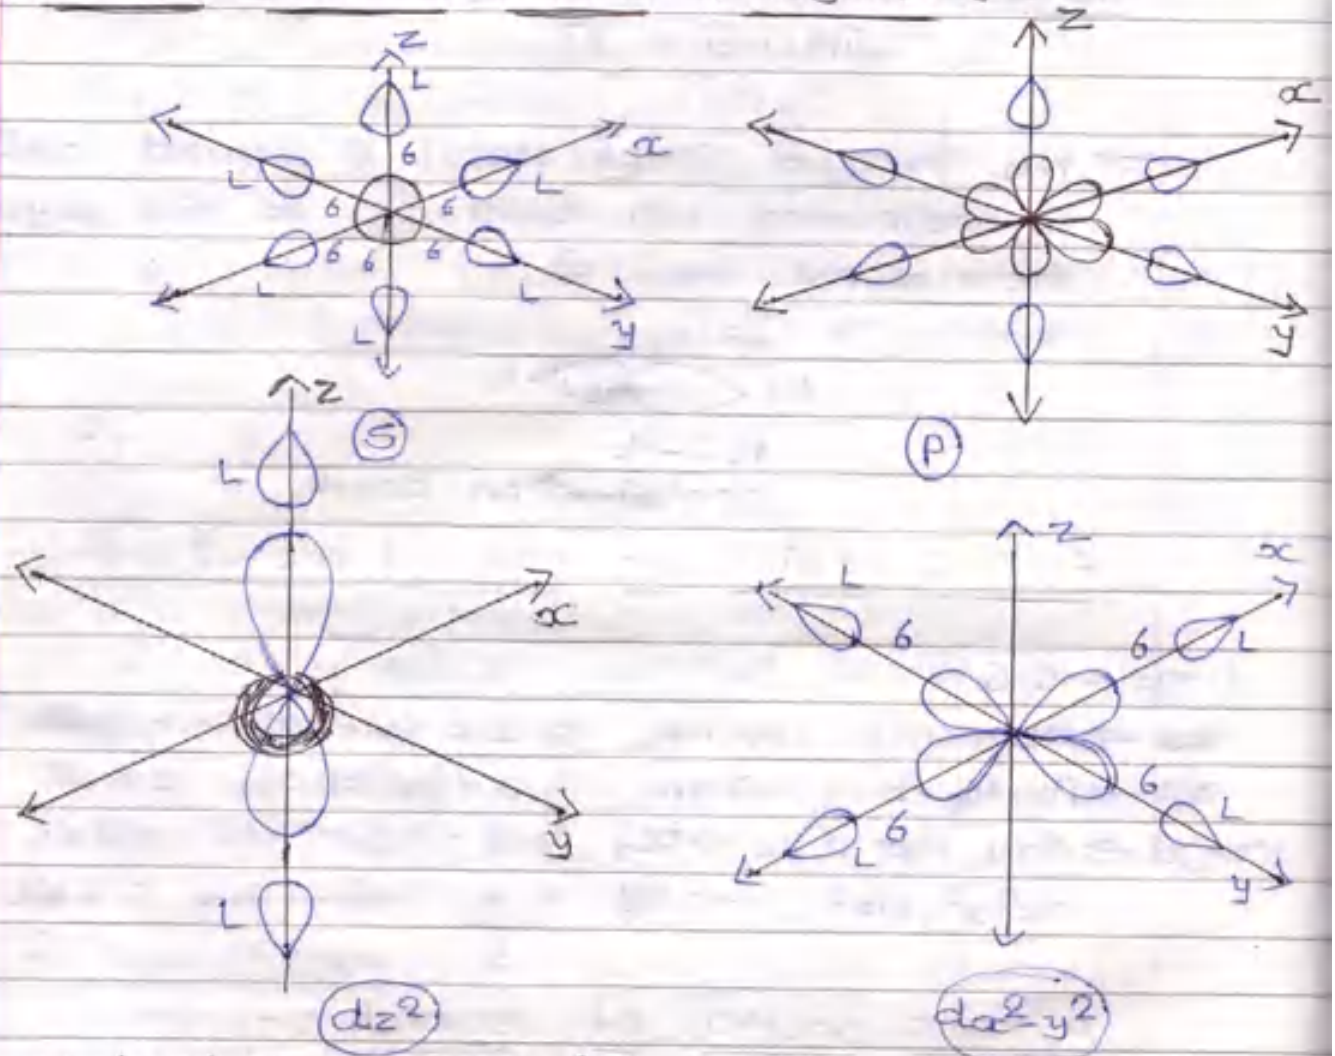 z
L
6
x
L
L
6
6
6
6
6
L
L
L
y
S
z
x
y
P
z
L
x
y
L
dz²
z
x
L
6
6
L
6
L
6
L
y
dx²-y²